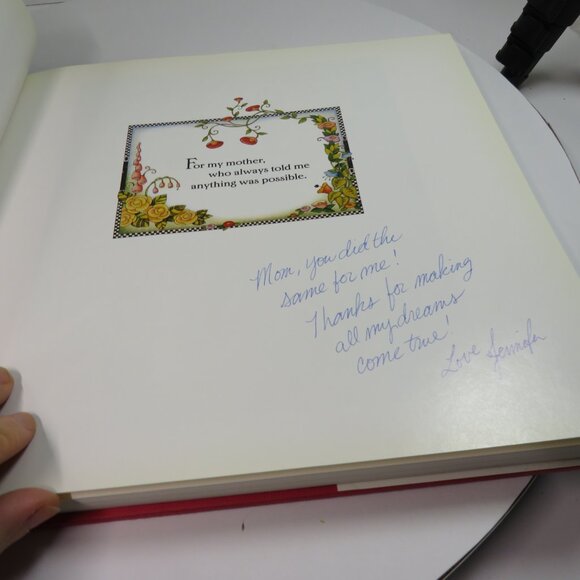 For my mother,
who always told me
anything was possible.
Mom, you did the
same for me!
Thanks for making
all my dreams
come true!
Love Jennifer